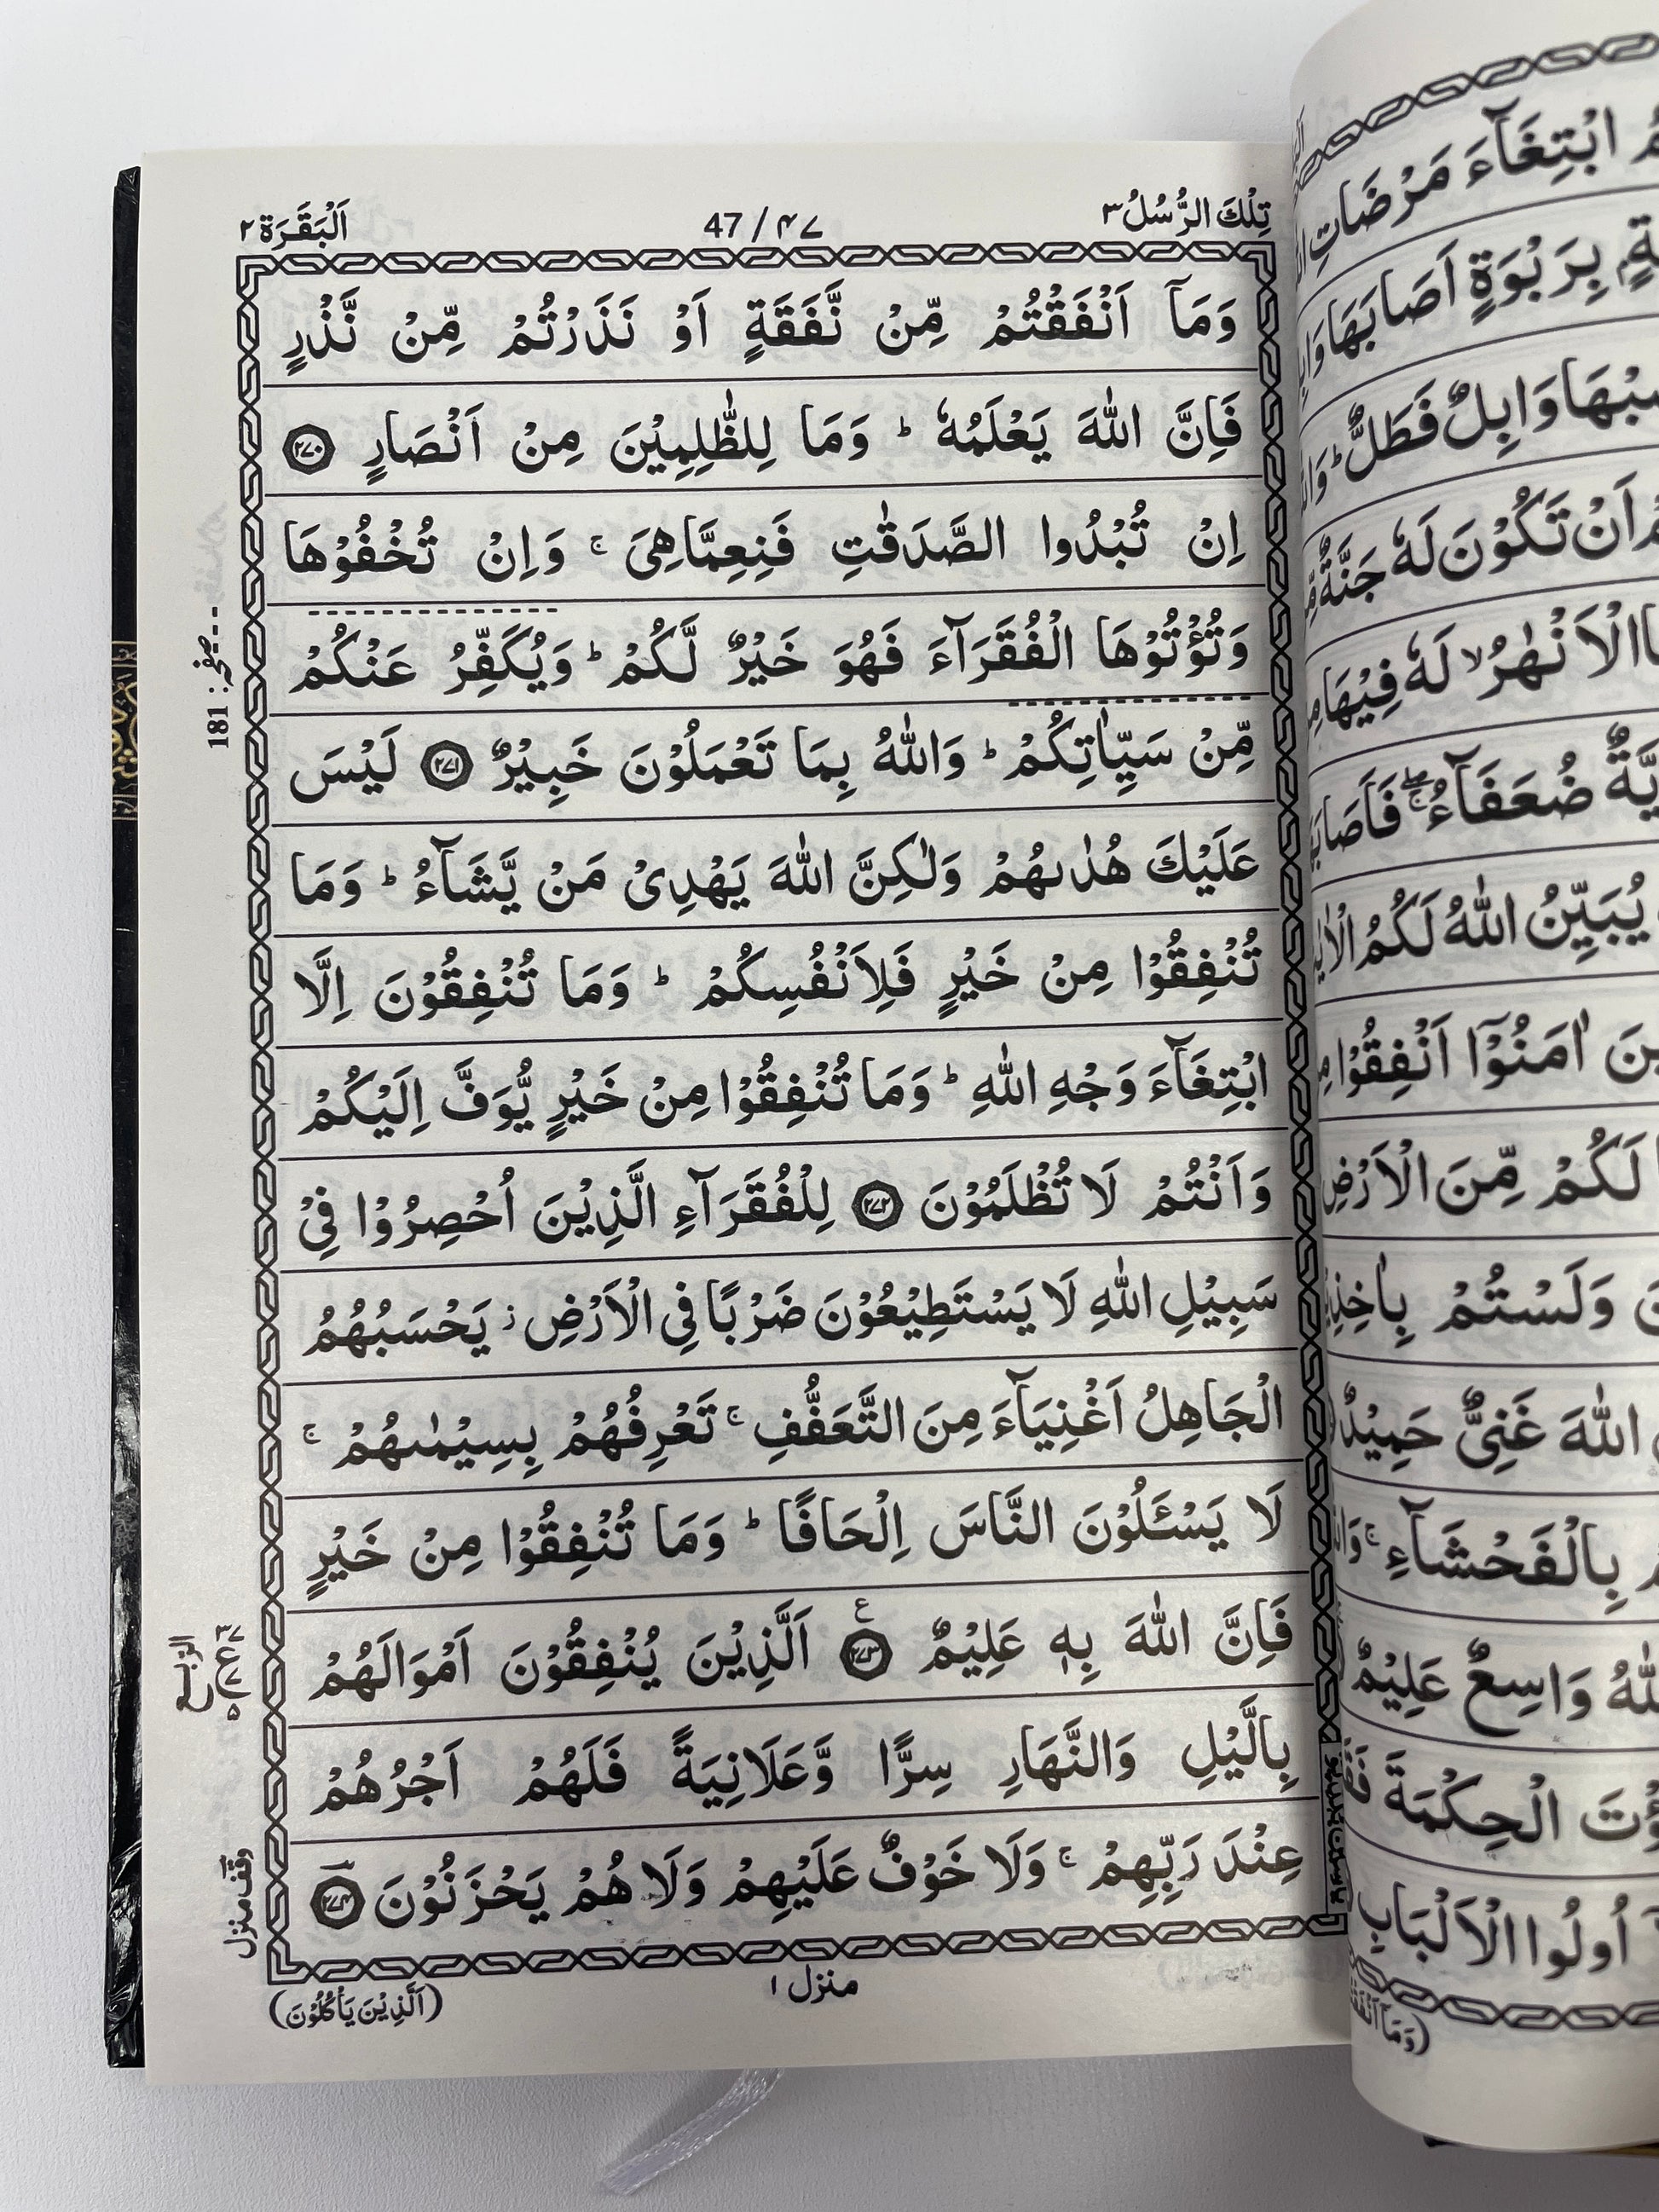 تِلْكَ الرُّسُلُ ٣
47 / ۴۷
اَلْبَقَرَة ٢
وَمَاۤ اَنْفَقْتُمْ مِّنْ نَّفَقَةٍ اَوْ نَذَرْتُمْ مِّنْ نَّذْرٍ
فَاِنَّ اللّٰهَ يَعْلَمُهٗ ؕ وَمَا لِلظّٰلِمِيْنَ مِنْ اَنْصَارٍ ۲۷۰
اِنْ تُبْدُوا الصَّدَقٰتِ فَنِعِمَّاهِىَ ۚ وَاِنْ تُخْفُوْهَا
وَتُؤْتُوْهَا الْفُقَرَآءَ فَهُوَ خَيْرٌ لَّكُمْ ؕ وَيُكَفِّرُ عَنْكُمْ
مِّنْ سَيِّاٰتِكُمْ ؕ وَاللّٰهُ بِمَا تَعْمَلُوْنَ خَبِيْرٌ ۲۷۱ لَيْسَ
عَلَيْكَ هُدٰىهُمْ وَلٰكِنَّ اللّٰهَ يَهْدِىْ مَنْ يَّشَآءُ ؕ وَمَا
تُنْفِقُوْا مِنْ خَيْرٍ فَلِاَنْفُسِكُمْ ؕ وَمَا تُنْفِقُوْنَ اِلَّا
ابْتِغَآءَ وَجْهِ اللّٰهِ ؕ وَمَا تُنْفِقُوْا مِنْ خَيْرٍ يُّوَفَّ اِلَيْكُمْ
وَاَنْتُمْ لَا تُظْلَمُوْنَ ۲۷۲ لِلْفُقَرَآءِ الَّذِيْنَ اُحْصِرُوْا فِىْ
سَبِيْلِ اللّٰهِ لَا يَسْتَطِيْعُوْنَ ضَرْبًا فِى الْاَرْضِ ز يَحْسَبُهُمُ
الْجَاهِلُ اَغْنِيَآءَ مِنَ التَّعَفُّفِ ۚ تَعْرِفُهُمْ بِسِيْمٰىهُمْ ۚ
لَا يَسْـَٔلُوْنَ النَّاسَ اِلْحَافًا ؕ وَمَا تُنْفِقُوْا مِنْ خَيْرٍ
فَاِنَّ اللّٰهَ بِهٖ عَلِيْمٌ ۲۷۳ ع اَلَّذِيْنَ يُنْفِقُوْنَ اَمْوَالَهُمْ
بِالَّيْلِ وَالنَّهَارِ سِرًّا وَّعَلَانِيَةً فَلَهُمْ اَجْرُهُمْ
عِنْدَ رَبِّهِمْ ۚ وَلَا خَوْفٌ عَلَيْهِمْ وَلَا هُمْ يَحْزَنُوْنَ ۲۷۴
صفحہ: 181
الرّبع
وقف منزل
منزل ١
(اَلَّذِيْنَ يَأْكُلُوْنَ)
ابْتِغَآءَ مَرْضَاتِ
بِرَبْوَةٍ اَصَابَهَا
وَابِلٌ فَطَلٌّ ؕ
اَنْ تَكُوْنَ لَهٗ جَنَّةٌ
الْاَنْهٰرُ ۙ لَهٗ فِيْهَا
ضُعَفَآءُ
يُبَيِّنُ اللّٰهُ لَكُمُ
اٰمَنُوْۤا اَنْفِقُوْا
لَكُمْ مِّنَ الْاَرْضِ
وَلَسْتُمْ
اللّٰهَ غَنِىٌّ حَمِيْدٌ
بِالْفَحْشَآءِ ۚ
وَاسِعٌ عَلِيْمٌ
الْحِكْمَةَ
اُولُوا الْاَلْبَابِ